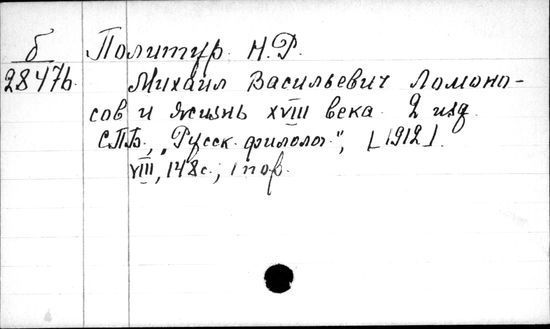 б Политур Н.Р.
28476 Михаил Васильевич Ломоно-
сов и жизнь XVIII века. 2 изд.
СПБ., "Русск. филолог.", [1912].
VIII, 148 с.; 1 пор.